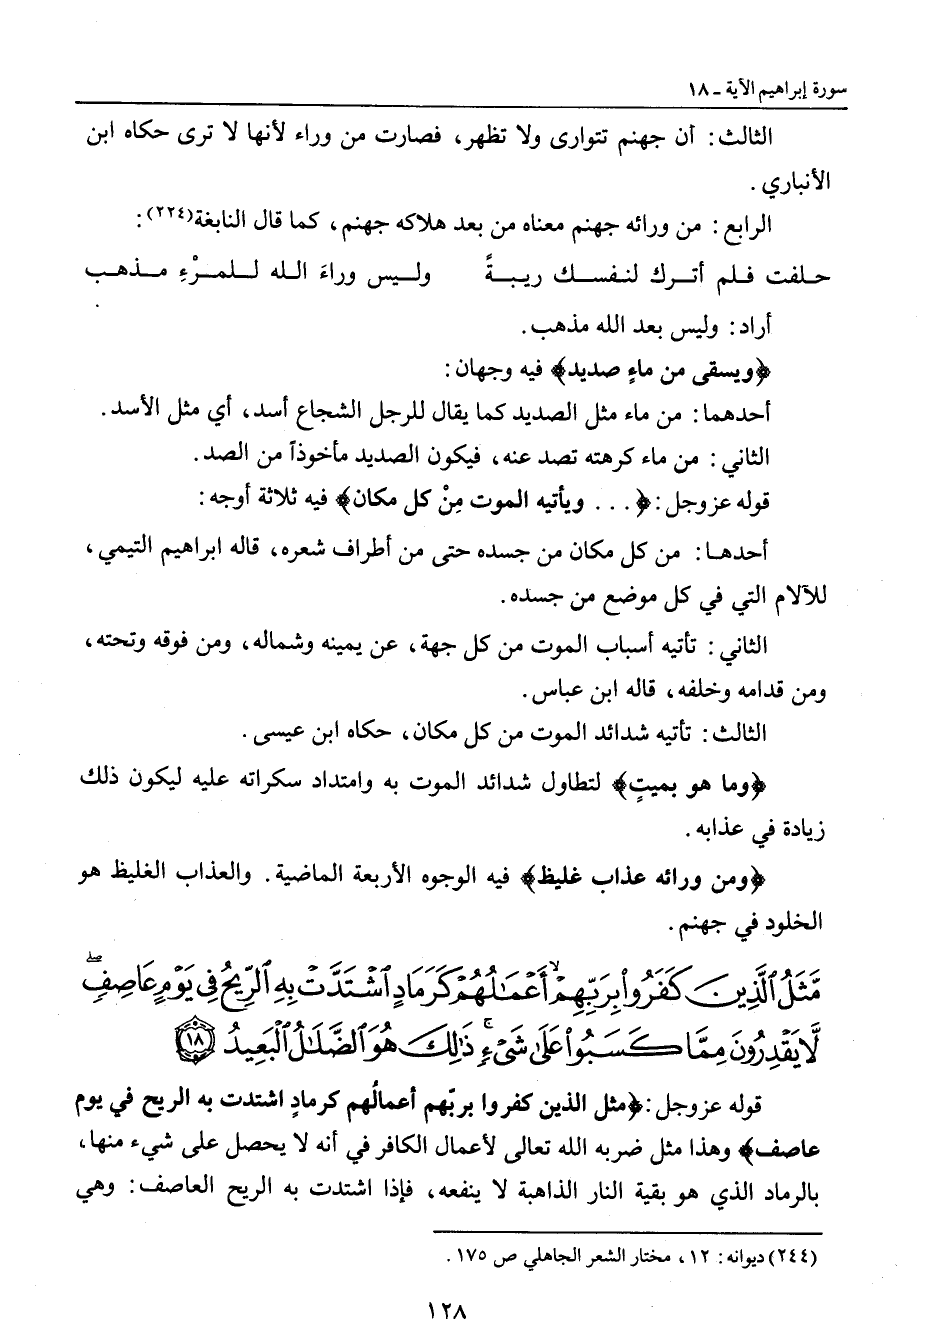 سورة إبراهيم الآية ـ ١٨
الثالث: أن جهنم تتوارى ولا تظهر، فصارت من وراء لأنها لا ترى حكاه ابن
الأنباري.
الرابع: من ورائه جهنم معناه من بعد هلاكه جهنم، كما قال النابغة(٢٢٤):
حلفت فلم أترك لنفسك ريبةً وليس وراءَ الله للمرْءِ مذهب
أراد: وليس بعد الله مذهب.
﴿ويسقى من ماءٍ صديد﴾ فيه وجهان:
أحدهما: من ماء مثل الصديد كما يقال للرجل الشجاع أسد، أي مثل الأسد.
الثاني: من ماء كرهته تصد عنه، فيكون الصديد مأخوذاً من الصد.
قوله عز وجل: ﴿... ويأتيه الموت مِنْ كل مكان﴾ فيه ثلاثة أوجه:
أحدهـا: من كل مكان من جسده حتى من أطراف شعره، قاله ابراهيم التيمي،
للآلام التي في كل موضع من جسده.
الثاني: تأتيه أسباب الموت من كل جهة، عن يمينه وشماله، ومن فوقه وتحته،
ومن قدامه وخلفه، قاله ابن عباس.
الثالث: تأتيه شدائد الموت من كل مكان، حكاه ابن عيسى.
﴿وما هو بميتٍ﴾ لتطاول شدائد الموت به وامتداد سكراته عليه ليكون ذلك
زيادة في عذابه.
﴿ومن ورائه عذاب غليظ﴾ فيه الوجوه الأربعة الماضية. والعذاب الغليظ هو
الخلود في جهنم.
مَّثَلُ ٱلَّذِينَ كَفَرُواْ بِرَبِّهِمْۙ أَعْمَٰلُهُمْ كَرَمَادٍ ٱشْتَدَّتْ بِهِ ٱلرِّيحُ فِى يَوْمٍ عَاصِفٍۖ
لَّا يَقْدِرُونَ مِمَّا كَسَبُواْ عَلَىٰ شَىْءٍۚ ذَٰلِكَ هُوَ ٱلضَّلَٰلُ ٱلْبَعِيدُ ١٨
قوله عز وجل: ﴿مثل الذين كفروا بربّهم أعمالُهم كرمادٍ اشتدت به الريح في يوم
عاصف﴾ وهذا مثل ضربه الله تعالى لأعمال الكافر في أنه لا يحصل على شيء منها،
بالرماد الذي هو بقية النار الذاهبة لا ينفعه، فإذا اشتدت به الريح العاصف: وهي
(٢٤٤) ديوانه: ١٢، مختار الشعر الجاهلي ص ١٧٥.
١٢٨